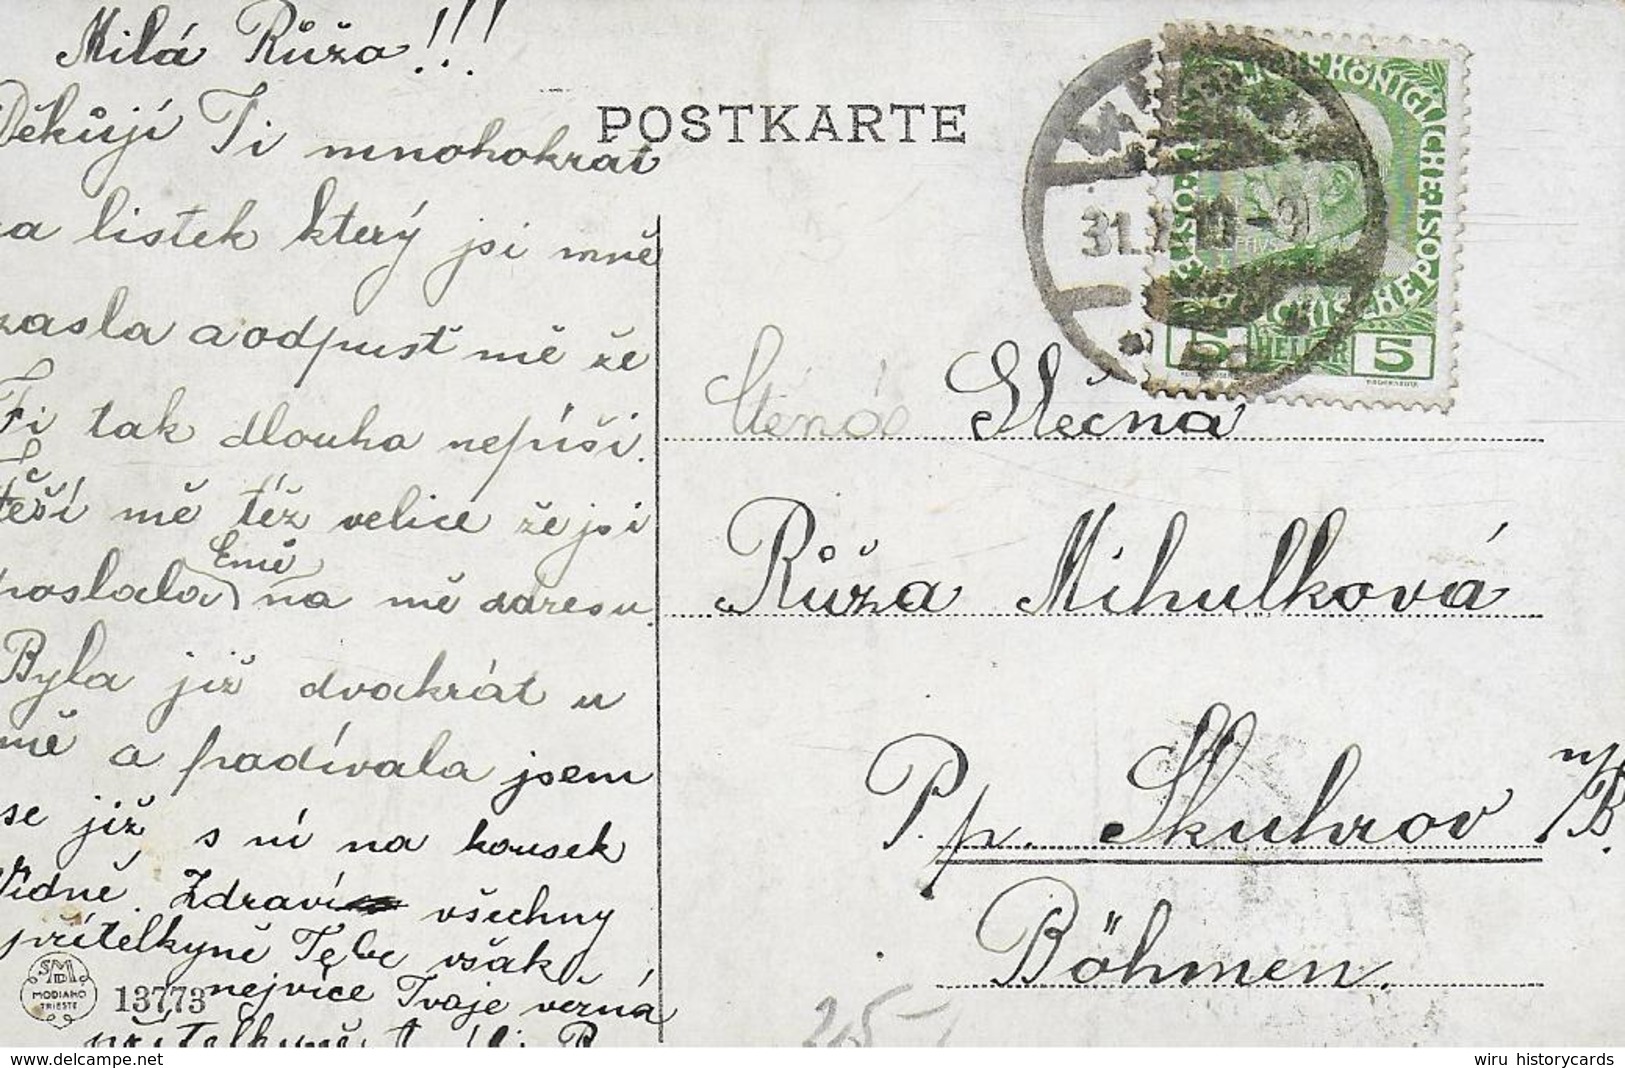 Milá Růža!!!
Děkuji Ti mnohokrát
za listek který jsi mně
zasla a odpusť mě že
Ti tak dlouho nepíši.
Těší mě též velice že jsi
poslala Emě na mě adresu.
Byla již dvakrát u
mě a podívala jsem
se již s ní na kousek
Vídně. Zdraví všechny
přítelkyně Tebe však
nejvíce Tvoje věrná
přítelkyně
POSTKARTE
31. 10-9
KÖNIGLICHE
5 HELLER 5
Ctěná Slečna
Růža Mihulková
P. p. Skuhrov n/B.
Böhmen.
SMD
MODIANO
TRIESTE
13773
25-
wiru historycards